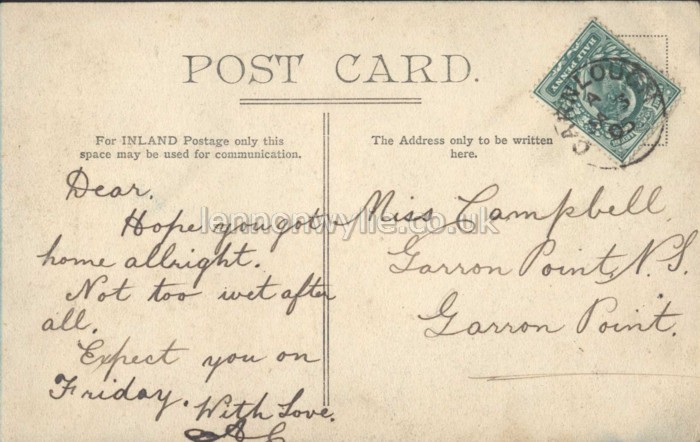 POST CARD.
For INLAND Postage only this
space may be used for communication.
The Address only to be written
here.
HALF PENNY
CARNLOUGH
Dear.
Hope you got
home allright.
Not too wet after
all.
Expect you on
Friday. With Love.
Miss Campbell
Garron Point, N.S.
Garron Point.
lennonwylie.co.uk